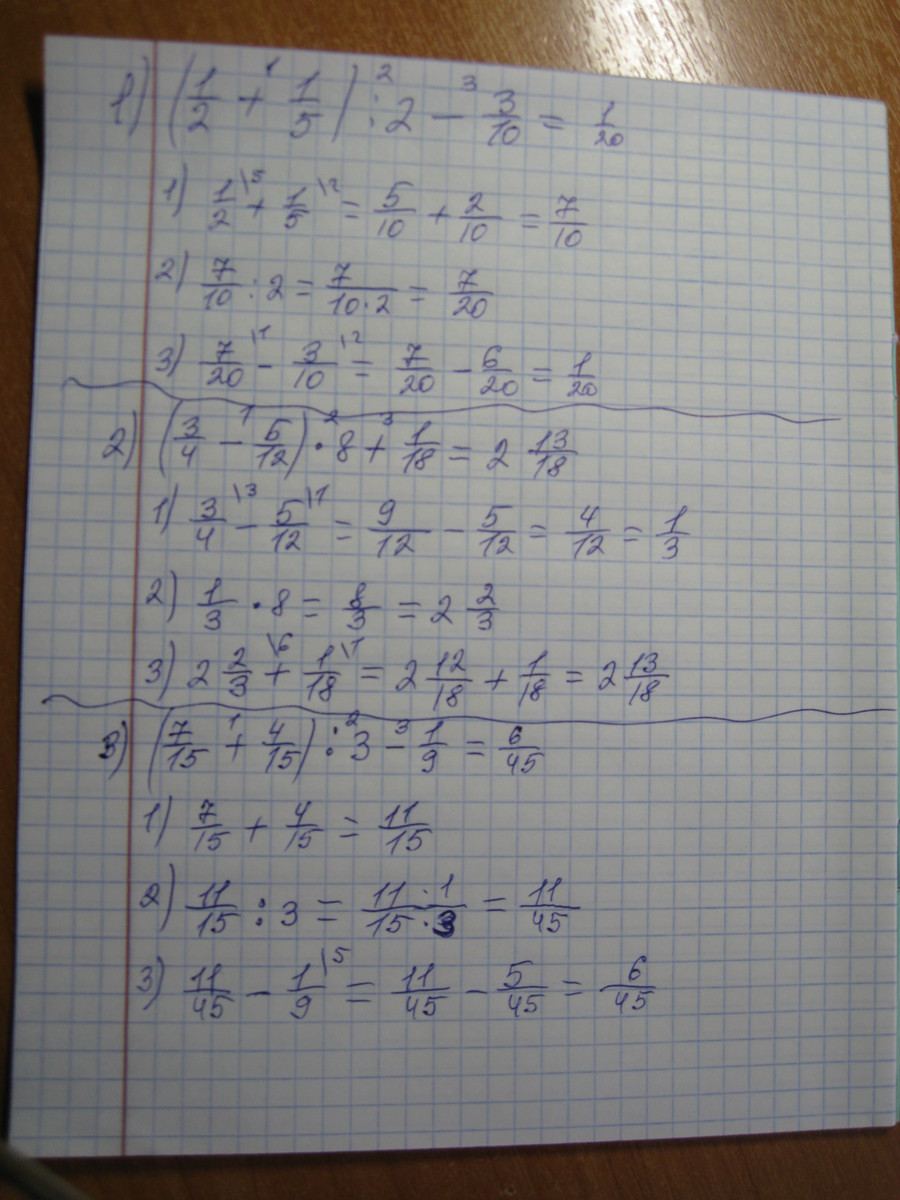 1) (1/2 +¹ 1/5) :² 2 −³ 3/10 = 1/20
1) 1/2\5 + 1/5\2 = 5/10 + 2/10 = 7/10
2) 7/10 : 2 = 7/10·2 = 7/20
3) 7/20\1 − 3/10\2 = 7/20 − 6/20 = 1/20
2) (3/4 −¹ 5/12) ·² 8 +³ 1/18 = 2 13/18
1) 3/4\3 − 5/12\1 = 9/12 − 5/12 = 4/12 = 1/3
2) 1/3 · 8 = 8/3 = 2 2/3
3) 2 2/3\6 + 1/18\1 = 2 12/18 + 1/18 = 2 13/18
3) (7/15 +¹ 4/15) :² 3 −³ 1/9 = 6/45
1) 7/15 + 4/15 = 11/15
2) 11/15 : 3 = 11·1/15·3 = 11/45
3) 11/45 − 1/9\5 = 11/45 − 5/45 = 6/45